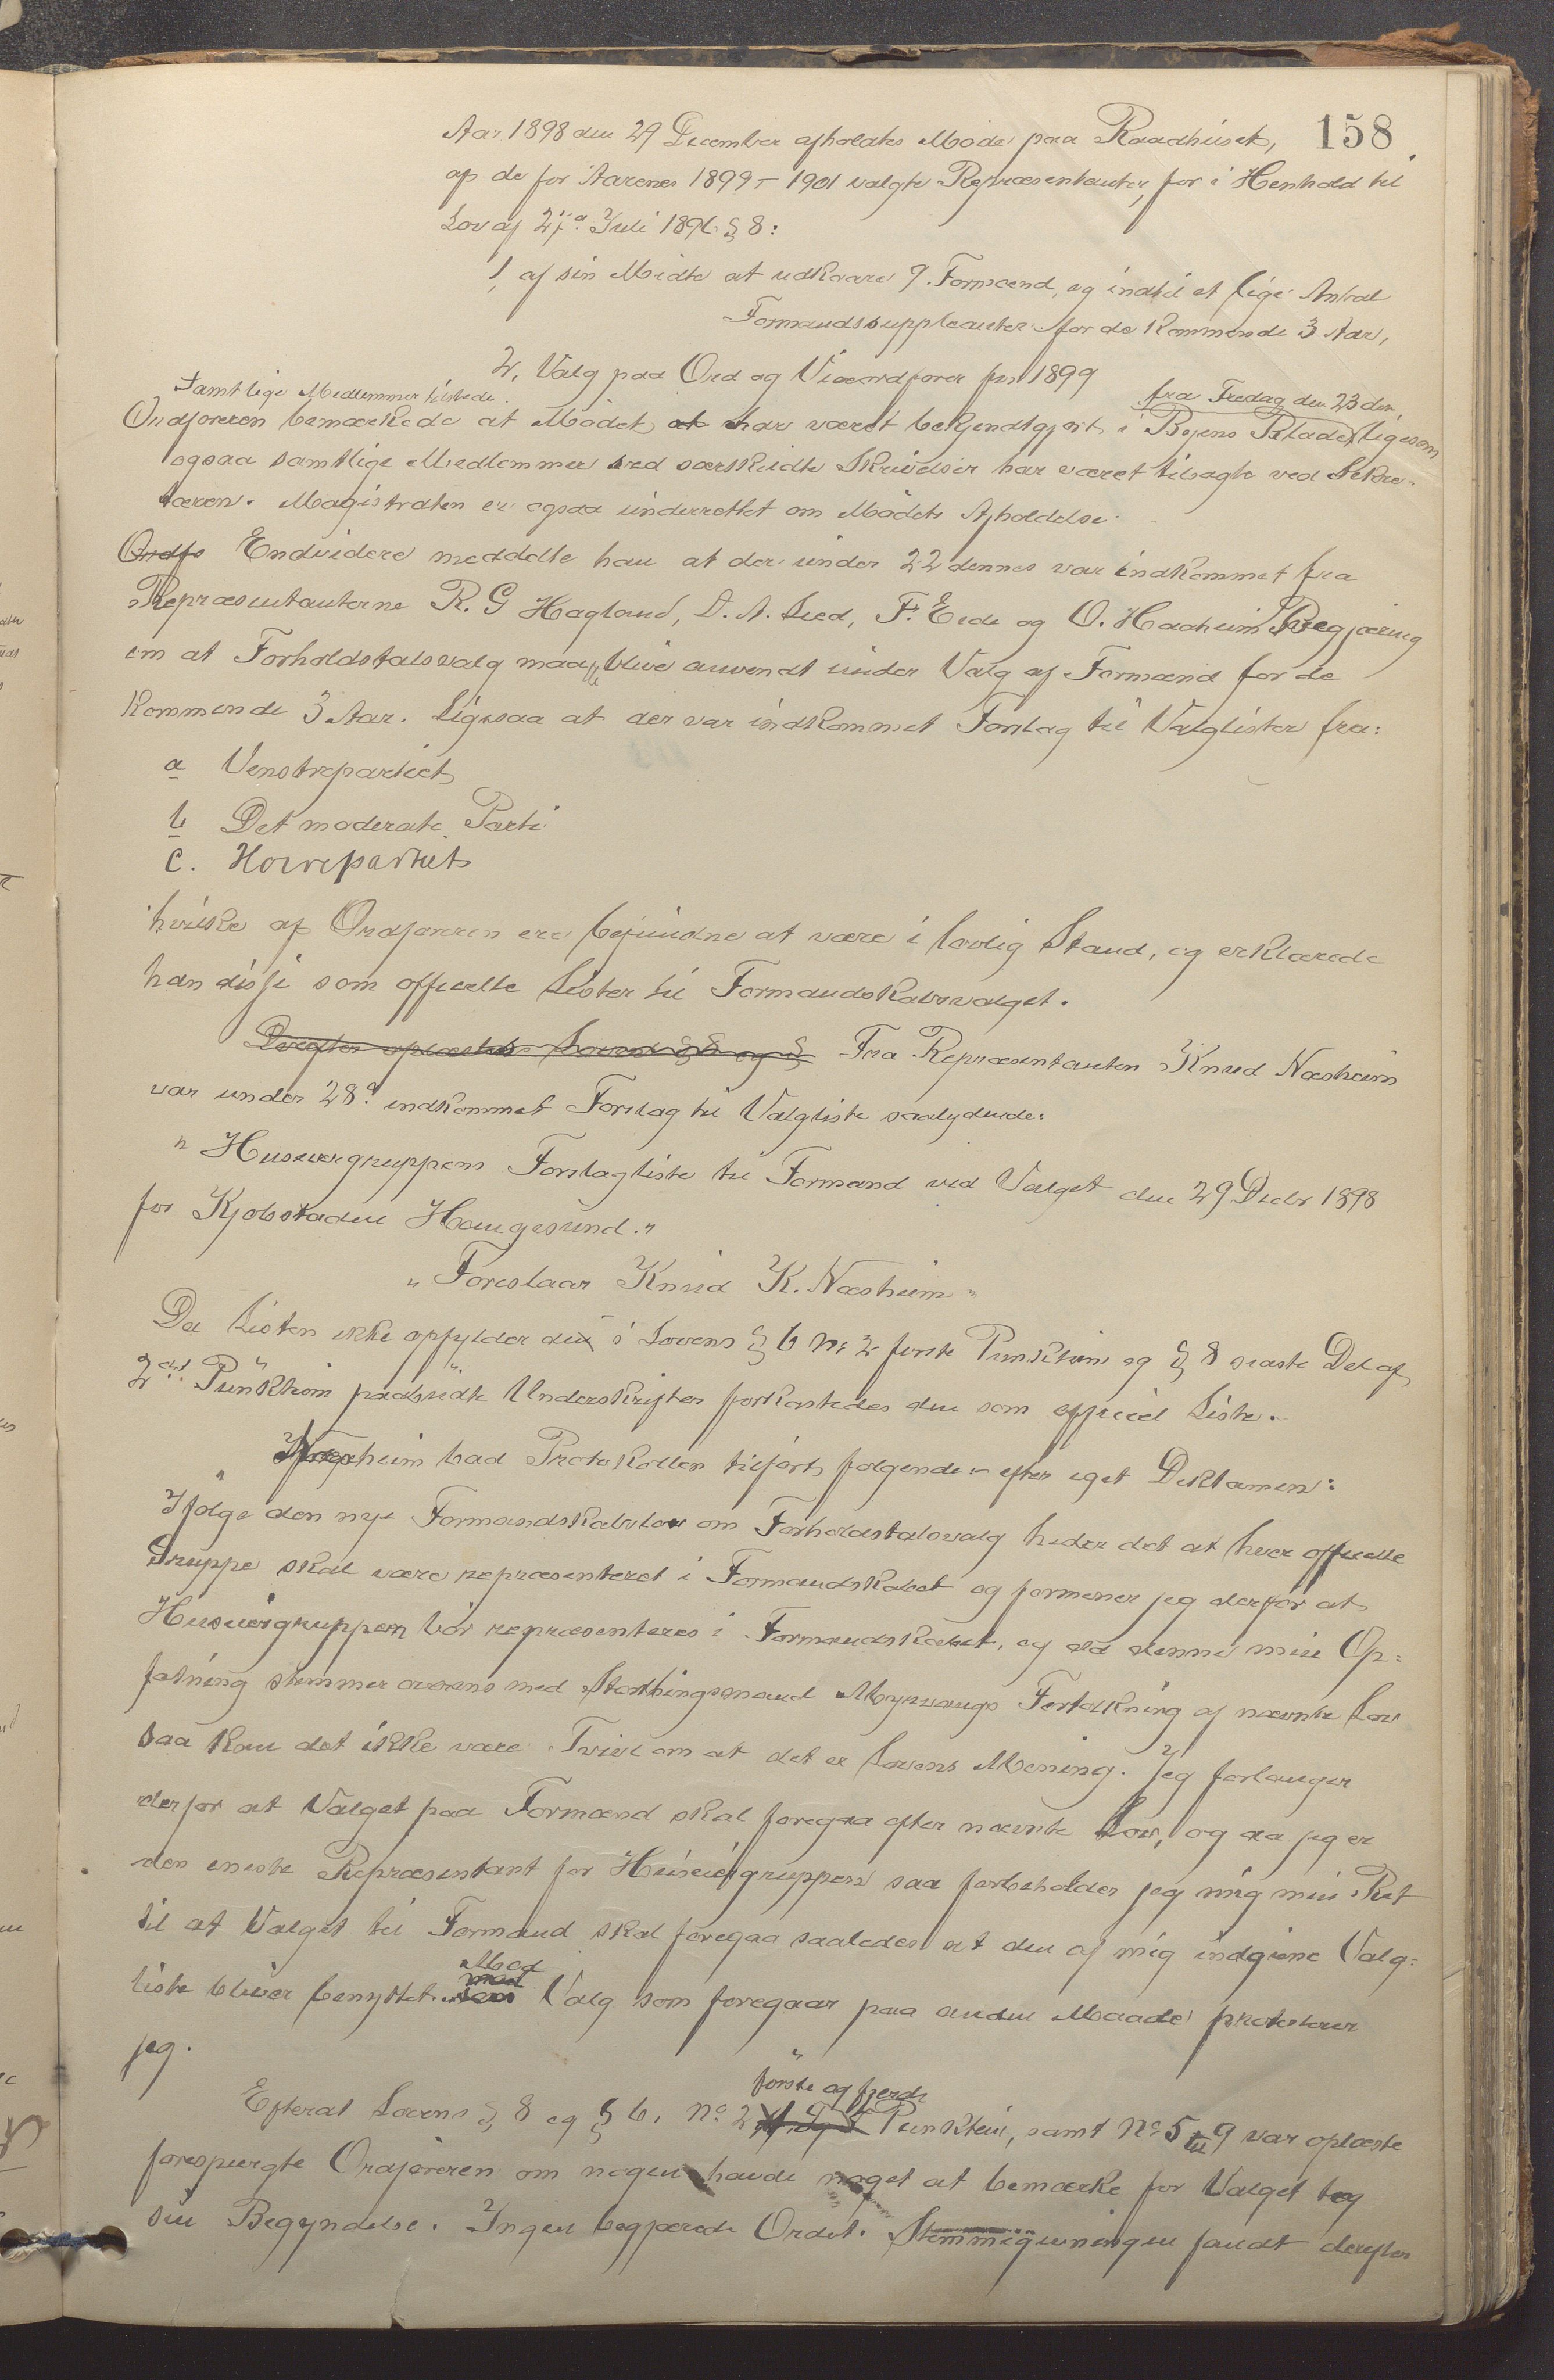 158
Aar 1898 den 29 December afholdtes Møde paa Raadhuset,
af de for Aarene 1899 – 1901 valgte Repræsentanter, for i Henhold til
Lov af 27de Juli 1896 § 8:
1, af sin Midte at udkaare 9. Formænd, og indtil et lige Antal
Formandssuppleanter for de kommende 3 Aar,
2, Valg paa Ord og Viceordfører for 1899
Samtlige Medlemmer tilstede.
fra Fredag den 23 ds.,
Ordføreren bemærkede at Mødet at har været bekjendtgjort i Byens Blade ligesom
ogsaa samtlige Medlemmer ved særskildte Skrivelser har været tilsagte ved Sekre-
tæren. Magistraten er ogsaa underrettet om Mødets Afholdelse.
Ordfø Endvidere meddelte han at der under 22 dennes var indkommet fra
Repræsentanterne R. G Hagland, D. A. Lied, F. Eide og O. Haaheim Begjæring
om at Forholdstalsvalg maatte blive anvendt under Valg af Formænd for de
kommende 3 Aar. Ligesaa at der var indkommet Forslag til Valglister fra:
a Venstrepartiet
b Det moderate Parti
c. Høirepartiet
hvilke af Ordføreren ere befundne at være i lovlig Stand, og erklærede
han disse som officielle Lister til Formandskabsvalget.
Derefter oplæstes Lovens § 8 og § Fra Repræsentanten Knud Næsheim
var under 28de indkommet Forslag til Valgliste saalydende:
"Huseiergruppens Forslagliste til Formænd ved Valget den 29 Decbr 1898
for Kjøbstaden Haugesund."
"Foreslaar Knud K. Næsheim"
Da Listen ikke opfylder de i Lovens § 6 No 2 første Punktum og § 8 sidste Del af
2det Punktum paabudte Underskrifter forkastedes den som officiel Liste.
Næsheim bad Protokollen tilført følgende efter eget Diktamen:
"Ifølge den nye Formandskabslov om Forholdstalsvalg heder det at hver officielle
Gruppe skal være repræsenteret i Formandskabet og formener jeg derfor at
Huseiergruppen bør repræsenteres i Formandskabet, og da denne min Op-
fatning stemmer overens med Storthingsmand Myrvangs Fortolkning af nævnte Lov
saa kan det ikke være Tvivl om at det er Lovens Mening. Jeg forlanger
derfor at Valget paa Formænd skal foregaa efter nævnte Lov, og da jeg er
den eneste Repræsentant for Huseiergruppen saa forbeholder jeg mig min Ret
til at Valget til Formænd skal foregaa saaledes at den af mig indgivne Valg-
Mod
liste bliver benyttet. Valg som foregaar paa anden Maade protesterer
jeg."
første og fjerde
Efterat Lovens § 8 og § 6, No 2 Punktum, samt No 5 til 9 var oplæste
forespurgte Ordføreren om nogen havde noget at bemærke før Valget tog
sin Begyndelse. Ingen begjærede Ordet. Stemmegivningen fandt derefter